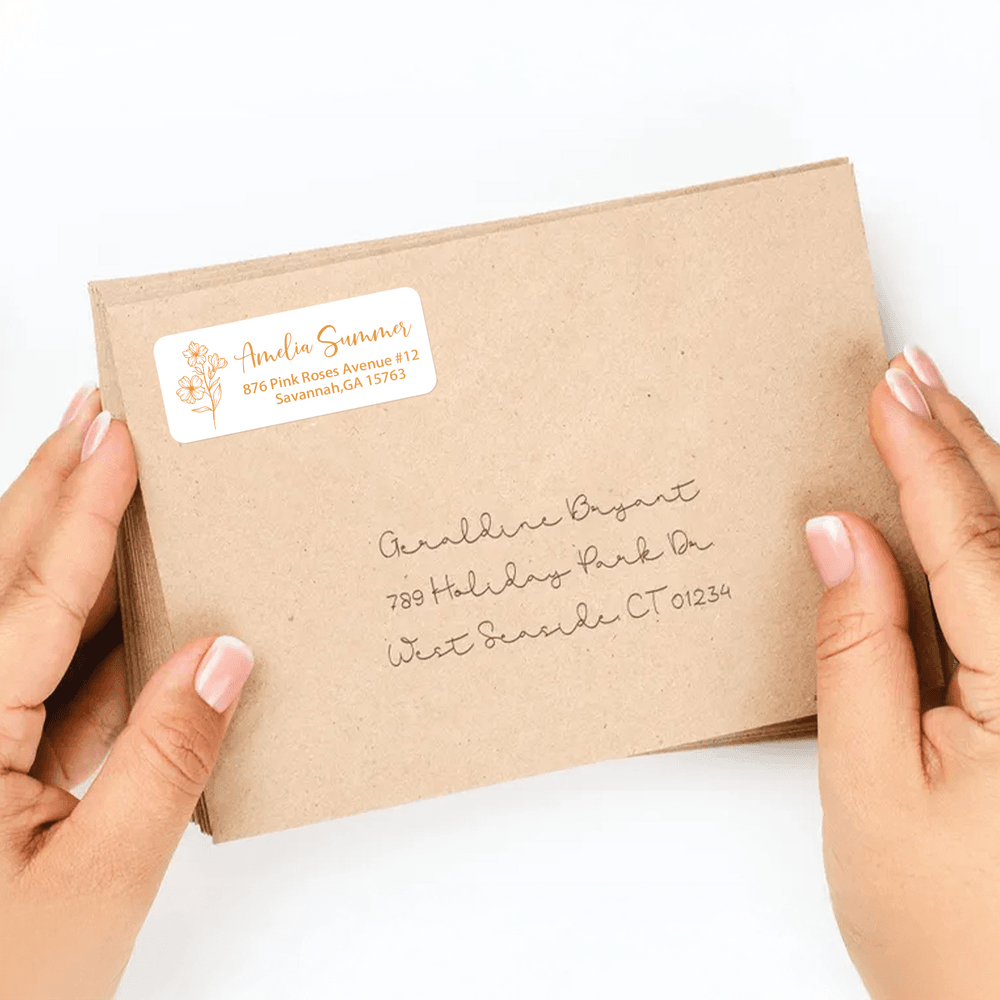 Amelia Summer
876 Pink Roses Avenue #12
Savannah,GA 15763
Geraldine Bryant
789 Holiday Park Dr
West Seaside, CT 01234